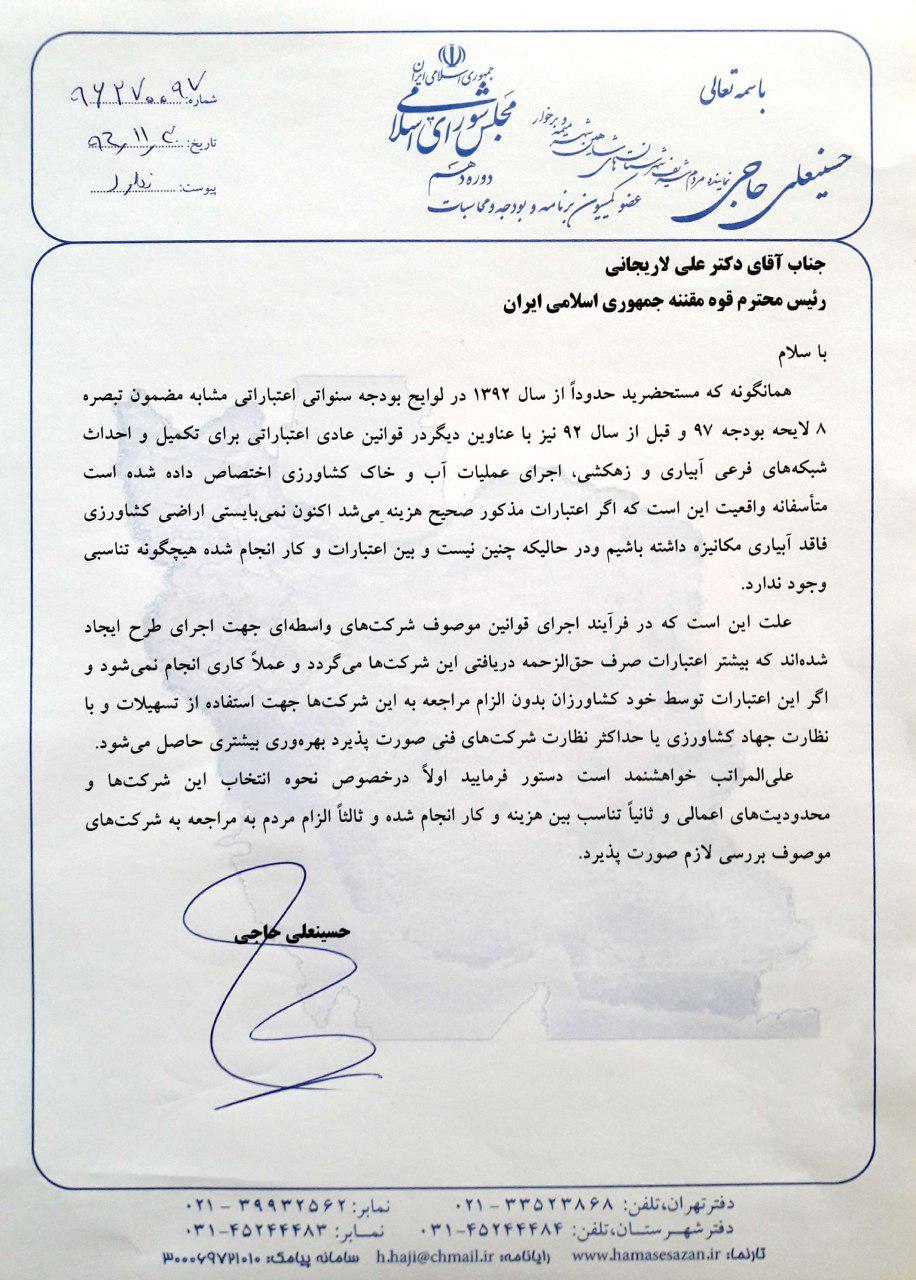 باسمه تعالی
جمهوری اسلامی ایران
مجلس شورای اسلامی
دوره دهم
حسینعلی حاجی
نماینده مردم شریف شهرستان‌های شاهین شهر میمه و برخوار
عضو کمیسیون برنامه و بودجه و محاسبات
شماره: ۹۶۲۷۰۰۹۷
تاریخ:
پیوست: ندارد
جناب آقای دکتر علی لاریجانی
رئیس محترم قوه مقننه جمهوری اسلامی ایران
با سلام
همانگونه که مستحضرید حدوداً از سال ۱۳۹۲ در لوایح بودجه سنواتی اعتباراتی مشابه مضمون تبصره
۸ لایحه بودجه ۹۷ و قبل از سال ۹۲ نیز با عناوین دیگردر قوانین عادی اعتباراتی برای تکمیل و احداث
شبکه‌های فرعی آبیاری و زهکشی، اجرای عملیات آب و خاک کشاورزی اختصاص داده شده است
متأسفانه واقعیت این است که اگر اعتبارات مذکور صحیح هزینه می‌شد اکنون نمی‌بایستی اراضی کشاورزی
فاقد آبیاری مکانیزه داشته باشیم ودر حالیکه چنین نیست و بین اعتبارات و کار انجام شده هیچگونه تناسبی
وجود ندارد.
علت این است که در فرآیند اجرای قوانین موصوف شرکت‌های واسطه‌ای جهت اجرای طرح ایجاد
شده‌اند که بیشتر اعتبارات صرف حق‌الزحمه دریافتی این شرکت‌ها می‌گردد و عملاً کاری انجام نمی‌شود و
اگر این اعتبارات توسط خود کشاورزان بدون الزام مراجعه به این شرکت‌ها جهت استفاده از تسهیلات و با
نظارت جهاد کشاورزی یا حداکثر نظارت شرکت‌های فنی صورت پذیرد بهره‌وری بیشتری حاصل می‌شود.
علی‌المراتب خواهشمند است دستور فرمایید اولاً درخصوص نحوه انتخاب این شرکت‌ها و
محدودیت‌های اعمالی و ثانیاً تناسب بین هزینه و کار انجام شده و ثالثاً الزام مردم به مراجعه به شرکت‌های
موصوف بررسی لازم صورت پذیرد.
حسینعلی حاجی
دفترتهران،تلفن: ۳۳۵۲۳۸۶۸ - ۰۲۱ نمابر: ۳۹۹۳۲۵۶۲ - ۰۲۱
دفترشهرستان،تلفن: ۴۵۲۴۴۴۸۴-۰۳۱ نمابر: ۴۵۲۴۴۴۸۳-۰۳۱
تارنما: www.hamasesazan.ir رایانامه: h.haji@chmail.ir سامانه پیامک: ۳۰۰۰۶۹۷۲۱۰۱۰